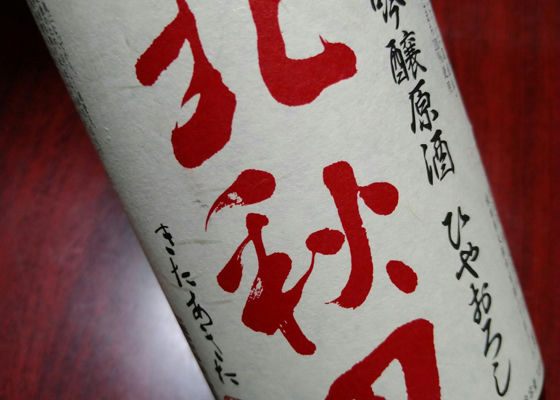 吟醸原酒
ひやおろし
北秋田
きたあきた